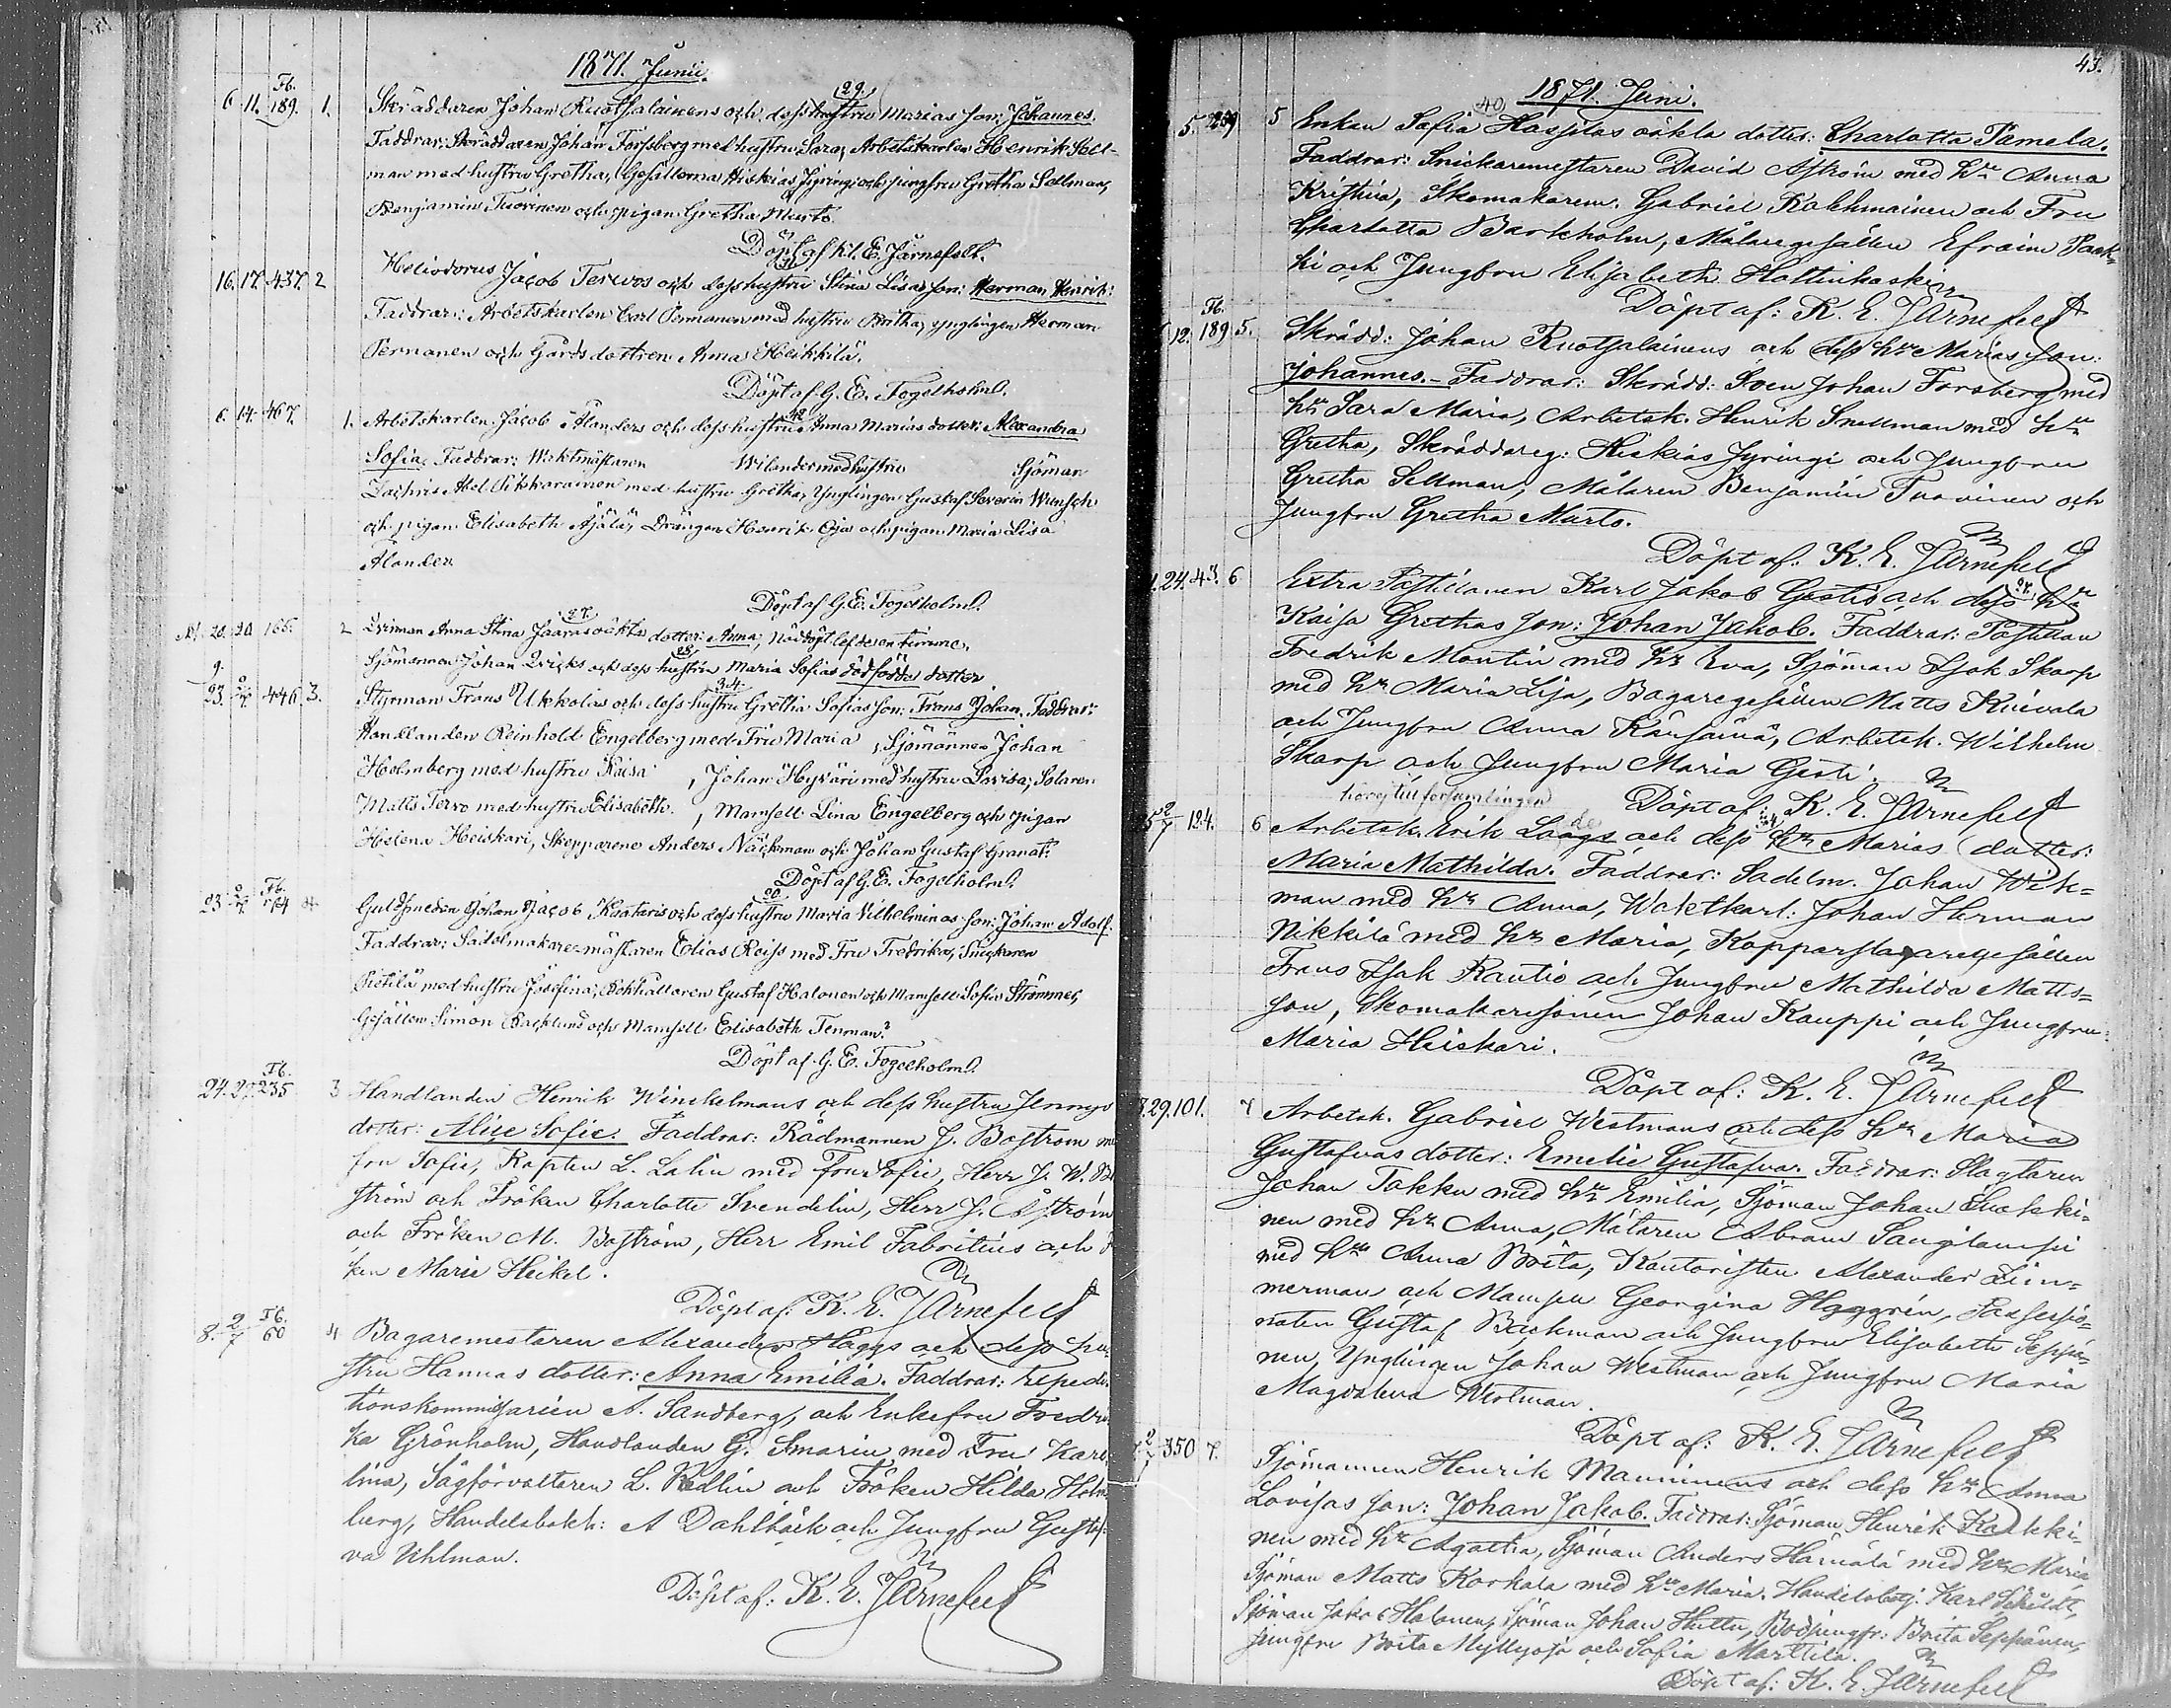 1871. Junii.
Fb.
6. 11. 189. 1. Skräddaren Johan Ruotsalainens och dess hustru (29) Marias son: Johannes.
Faddrar: Skräddaren Johan Forssberg med hustru Sara, Arbetskarlen Henrik Sell-
man med hustru Gretha, Gesällerna Hiskias Jyringi och jungfru Gretha Sellman,
Benjamin Tuovinen och pigan Gretha Murto.
Döpt af K. E. Järnefelt.
16. 17. 437. 2 Heliodorus Jacob Tervos och dess hustru Stina Lisas son: Herman Henrik.
Faddrar: Arbetskarlen Carl Pernanen med hustru Britha, ynglingen Herman
Pernanen och Gårdsdottren Anna Heikkilä.
Döpt af G. E. Fogelholm.
6. 14. 467. 1. Arbetskarlen Jacob Ålanders och dess hustru (42) Anna Marias dotter: Alexandra
Sofia. Faddrar: Waktmästaren Wilander med hustru Sjöman
Abel Pikkarainen med hustru Gretha, Ynglingen Gustaf Severin Wunsch
och pigan Elisabeth Äjälä, Drängen Henrik Oja och pigan Maria Lisa
Ålander.
Döpt af G. E. Fogelholm.
20. 20 166. 2 Qvinnan Anna Stina Jaaras oäkta (27.) dotter: Anna, Nöddöpt lefde en timme.
9. Sjömannen Johan Qvicks och dess hustru (28) Maria Sofias dödfödda dotter.
23. 2/7. 446. 3. Styrman Frans Ukkolas och dess hustru (34) Gretha Sofias son: Frans Johan. Faddrar:
Handlanden Reinhold Engelberg med Fru Maria , Sjömännen Johan
Holmberg med hustru Kaisa , Johan Hyväri med hustru Lovisa, Solaren
Matts Tervo med hustru Elisabeth , Mamsell Lina Engelberg och pigan
Helena Heiskari, Skepparene Anders Näckman och Johan Gustaf Granat.
Döpt af G. E. Fogelholm.
Fb.
23 2/7. 4. Guldsmeden Johan Jacob Kaataris och dess hustru (20) Maria Vilhelminas son: Johan Adolf.
Faddrar: Sadelmakaremästaren Elias Reiss med Fru Fredrika, Snickaren
Pietilä med hustru Josefina, Bokhållaren Gustaf Halonen och Mamsell Sofia Strömmer,
Gesällen Simon Backlund och Mamsell Elisabeth Tenman.
Döpt af G. E. Fogelholm.
Fb.
24. 27. 235 3 Handlanden Henrik Winckelmans och dess hustru Jennys
dotter: Alice Sofie. Faddrar: Rådmannen J. Boström m
fru Sofie, Kapten L. Lalin med fru Sofie, Herr J. W. Bo
ström och Fröken Charlotte Svendelin, Herr J. Åström
och Fröken M. Boström, Herr Emil Fabritius och F
ken Marie Heikel.
Döpt af: K. E. Järnefelt
Fb.
8. 2/7 60 4 Bagaremestaren Alexander Häggs och dess hu-
stru Hannas dotter: Anna Emilia. Faddrar: Expedi-
tionskommissarien A. Sandberg, och Enkefru Fredri
ka Grönholm, Handlanden G. Smarin med Fru Karo
lina, Sågförvaltaren L. Redlin och Fröken Hilda Holm
berg, Handelsbokh: A Dahlbäck och Jungfru Gustaf-
va Uhlman.
Döpt af: K. E. Järnefelt
43.
1871. Juni.
5. 259 5 Enkan Sofia (40) Hassilas oäkta dotter: Charlotta Pamela.
Faddrar: Snickaremestaren David Åström med hu Anna
Kristina, Skomakaren Gabriel Kakkinainen och Fru
Charlotta Barkholm, Målaregesällen Efraim Paak-
ki och Jungfru Elisabeth Hollinkoski
Döpt af: K. E. Järnefelt
Fb.
12. 189 5. Skrädd: Johan Ruotsalainens och dess hu Marias son:
Johannes. - Faddrar: Skrädd: Sven Johan Forsberg med
hu Sara Maria, Arbetsk. Henrik Snellman med hu
Gretha, Skräddareg: Hiskias Jyringi och Jungfru
Gretha Sellman, Målaren Benjamin Tuovinen och
Jungfru Gretha Murto.
Döpt af: K. E. Järnefelt
24. 43. 6 Extra Postillonen Karl Jakob Gestis och dess (27) hu
Kaisa Grethas son: Johan Jakob. Faddrar: Postillon
Fredrik Montin med hu Eva, Sjöman Isak Skarp
med hu Maria Lisa, Bagaregesällen Matts Kuivala
och Jungfru Anna Känsämä, Arbetsk. Wilhelm
Skarp och Jungfru Maria Gesti.
Döpt af: K. E. Järnefelt
hörej till församlingen
2/7 124. 6 Arbetsk. Erik Laags och dess (24) hu Marias dotter:
Maria Mathilda. Faddrar: Sadelm. Johan Wik-
man med hu Anna, Waktkarl: Johan Herman
Nikkilä med hu Maria, Kopparslagaregesällen
Frans Isak Rautio och Jungfru Mathilda Matts-
son, Skomakaresonen Johan Kauppi och Jungfru
Maria Heiskari.
Döpt af: K. E. Järnefelt
29. 101. 7 Arbetsk. Gabriel Westmans och dess hu Maria
Gustafvas dotter: Emelie Gustafva. Faddrar: Slagtaren
Johan Takku med hu Emilia, Sjöman Johan Luokki-
nen med hu Anna, Målaren Abram Sangilampi
med hu Anna Brita, Kantoristen Alexander Zim-
merman och Mamsell Georgina Häggrén, Possessio-
naten Gustaf Backman och Jungfru Elisabeth Seppä-
nen, Ynglingen Johan Westman och Jungfru Maria
Magdalena Westman.
Döpt af: K. E. Järnefelt
2/7 350 7. Sjömannen Henrik Manninens och dess hu Anna
Lovisas son: Johan Jakob. Faddrar: Sjöman Henrik Kaikki-
nen med hu Agatha, Sjöman Anders Hamälä med hu Maria
Sjöman Matts Korkala med hu Maria. Handelsbetj. Karl Schildt,
Sjöman Jakob Halonen, Sjöman Johan Huttu, Bodjungfr: Brita Seppänen,
Jungfru Brita Myllyoja och Sofia Marttila.
Döpt af: K. E. Järnefelt